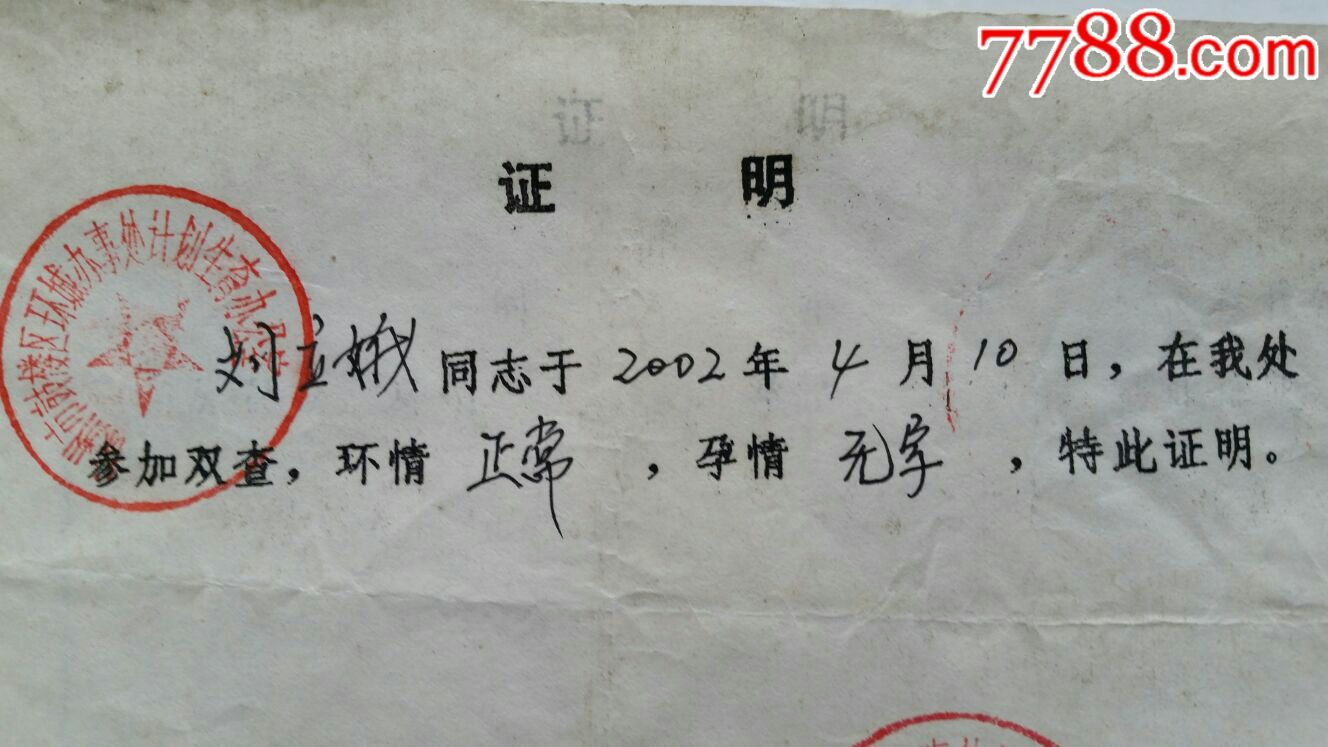 7788.com
证 明
证 明
鼓楼区环城办事处计划生育办公室
刘立娥同志于 2002年 4 月 10 日，在我处
参加双查，环情 正常 ，孕情 无孕 ，特此证明。